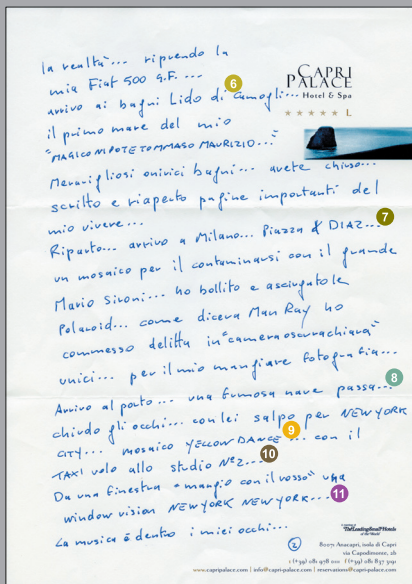 la realtà... riprendo la
mia Fiat 500 G.F. ...
6
arrivo ai bagni Lido di Camogli...
il primo mare del mio
"MAGICO NIPOTE TOMMASO MAURIZIO..."
Meravigliosi onirici bagni... avete chiuso...
scritto e riaperto pagine importanti del
mio vivere...
7
Riparto... arrivo a Milano... Piazza DIAZ...
un mosaico per il contaminarsi con il grande
Mario Sironi... ho bollito e asciugato le
Polaroid... come diceva Man Ray ho
commesso delitti in "cameraoscurachiara"
unici... per il mio mangiare fotografia...
8
Arrivo al porto... una fumosa nave passa...
chiudo gli occhi... con lei salpo per NEW YORK
9
CITY... mosaico YELLOW DANCE... con il
10
TAXI volo allo studio N°2...
Da una finestra "mangio con il rosso" una
11
window vision NEW YORK NEW YORK...
La musica è dentro i miei occhi...
2
CAPRI
PALACE
Hotel & Spa
★ ★ ★ ★ ★ L
The Leading Hotels
of the World
80071 Anacapri, isola di Capri
via Capodimonte, 2b
t (+39) 081 978 0111 f (+39) 081 837 3191
www.capripalace.com | info@capripalace.com | reservations@capripalace.com